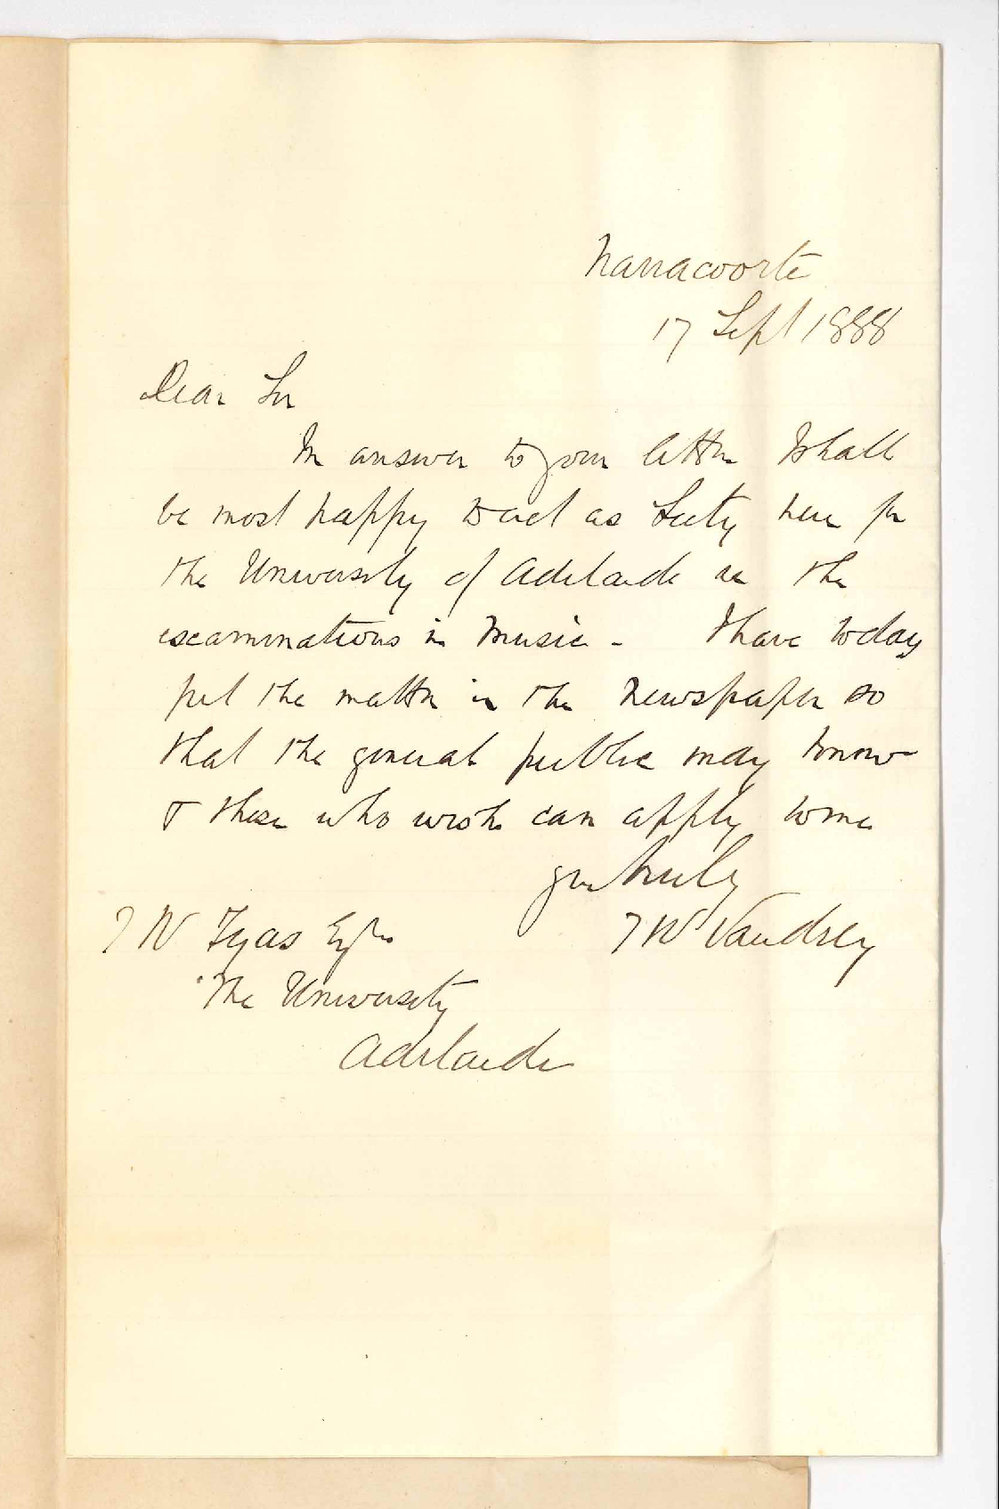 Narracoorte
17 Sept 1888
Dear Sir
In answer to your letter I shall
be most happy to act as Secty here for
the University of Adelaide in the
examinations in Music - I have today
put the matter in the newspaper so
that the general public may know
& those who wish can apply to me
yrs truly
J W Vaudrey
J W Tyas Esqre
The University
Adelaide